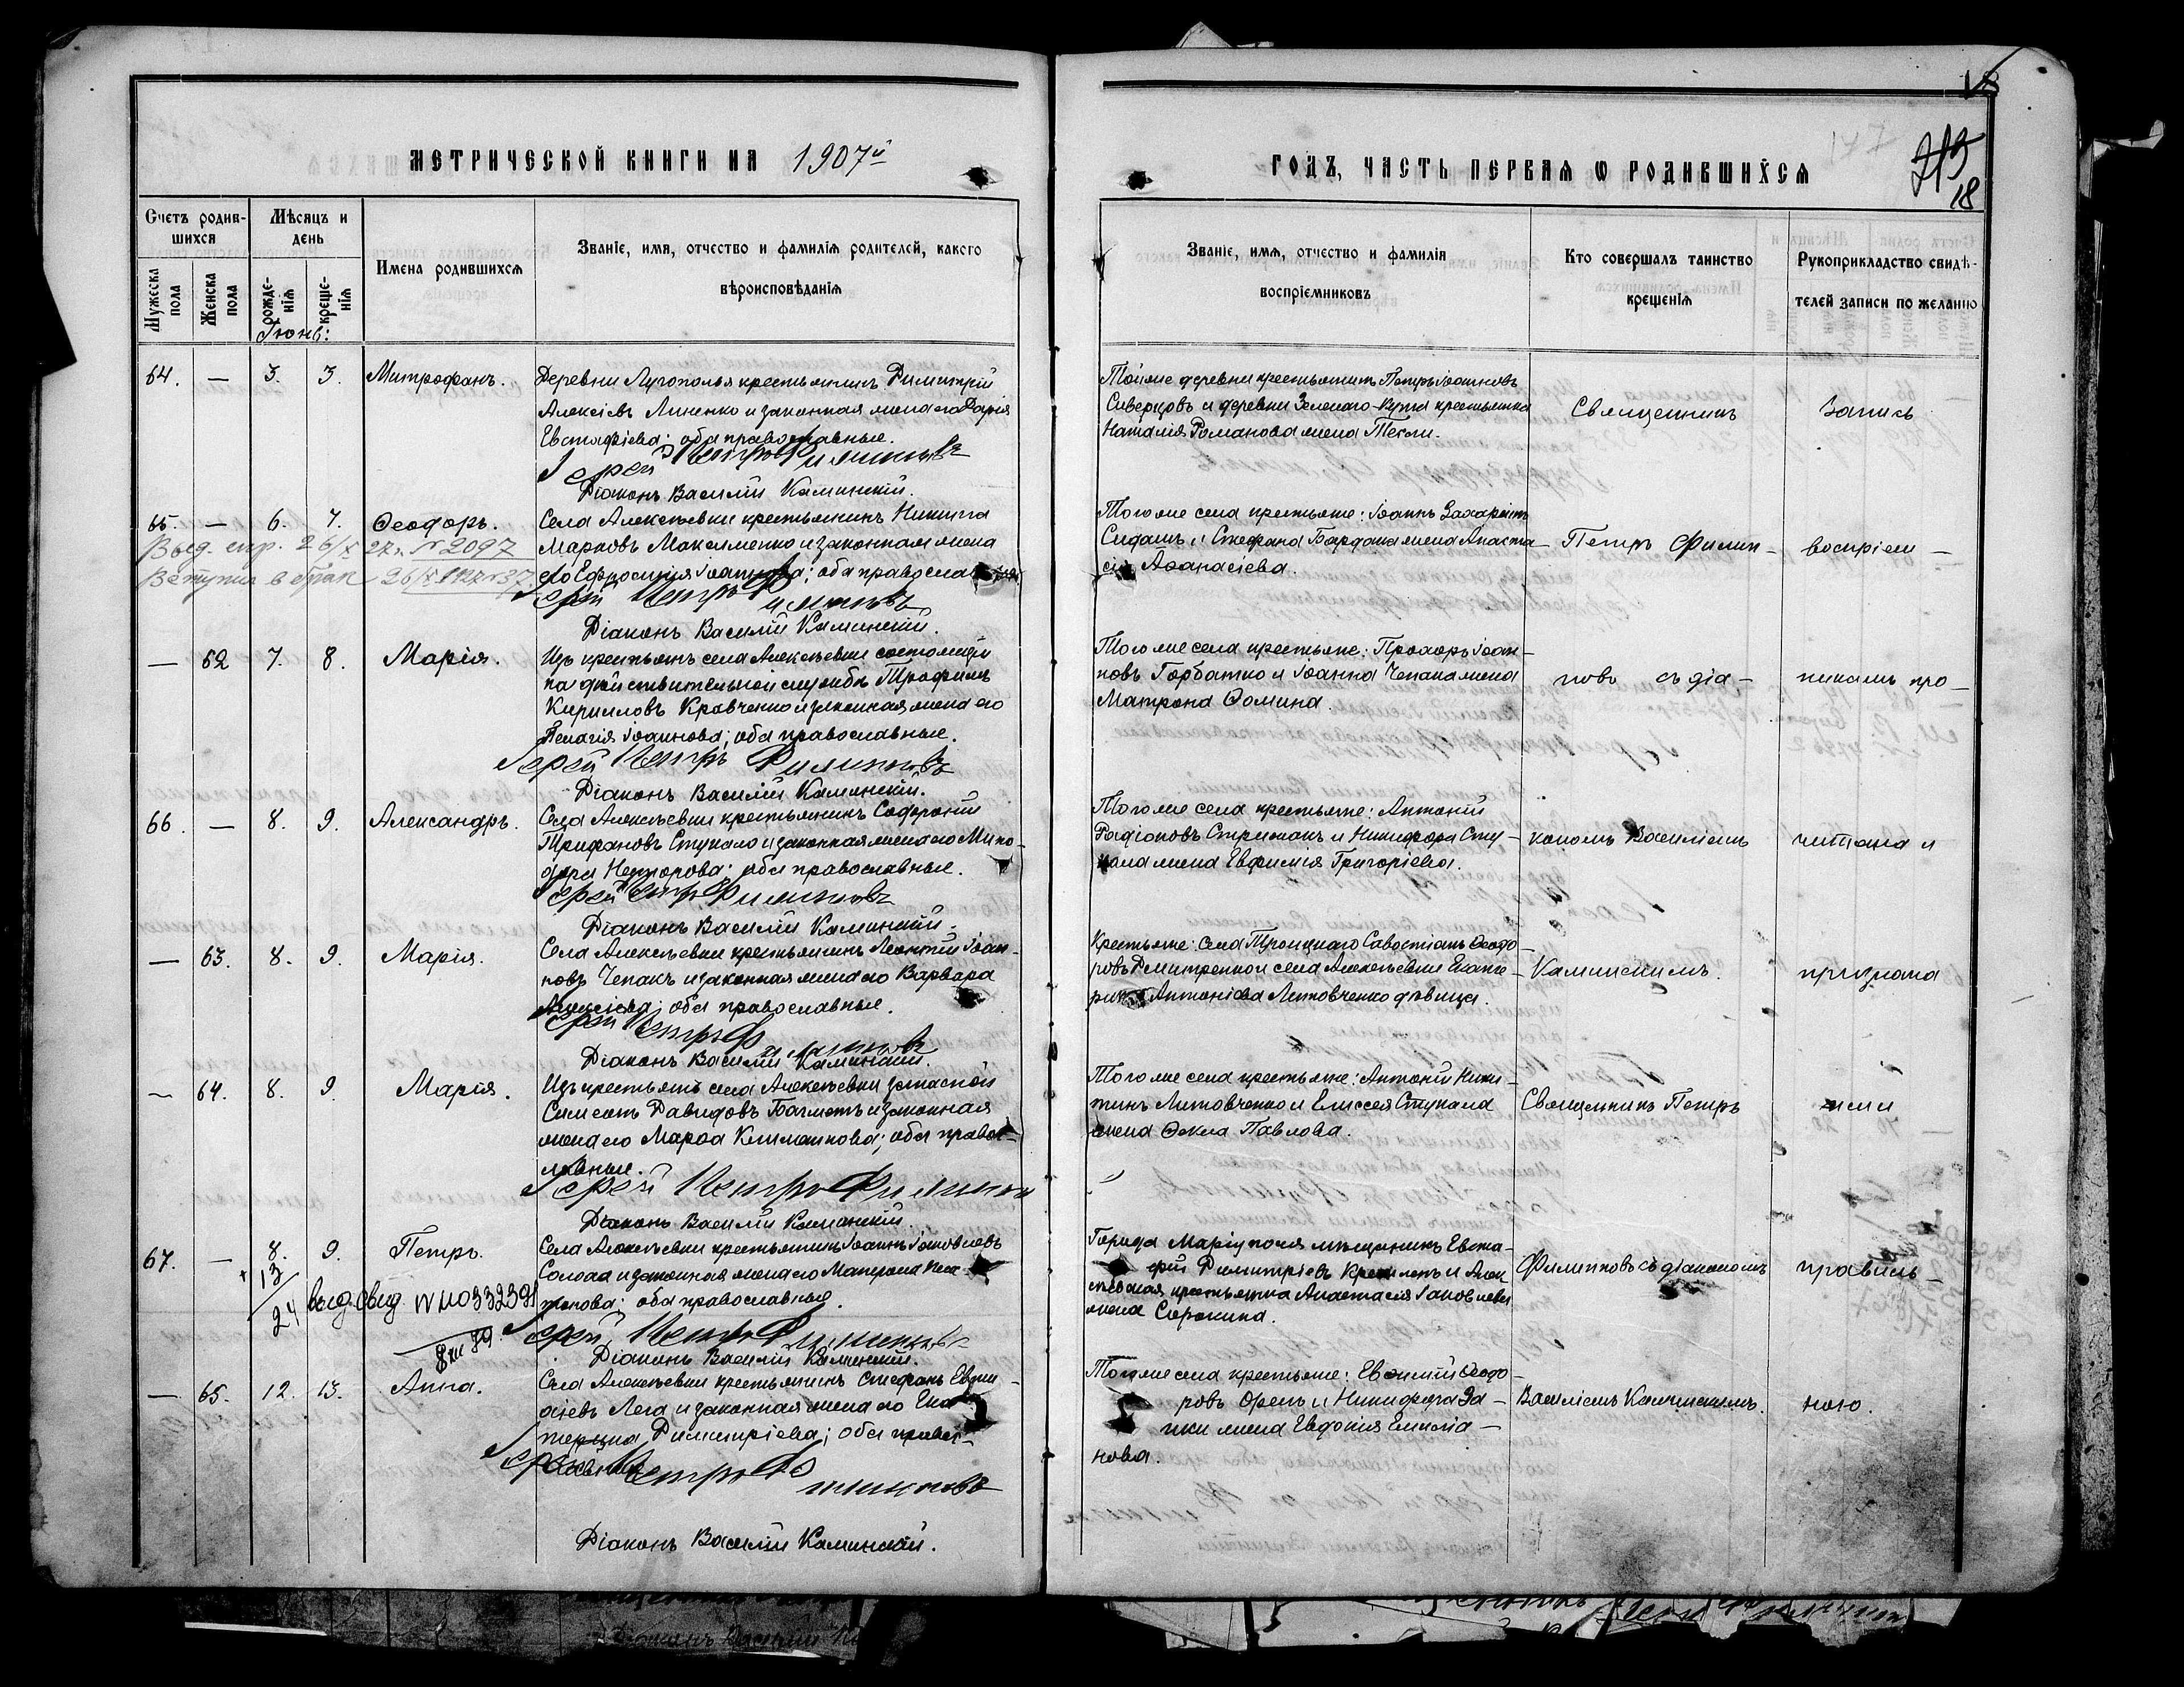 МЕТРИЧЕСКОЙ КНИГИ НА 1907й
ГОДЪ, ЧАСТЬ ПЕРВАЯ Ѡ РОДИВШИХСЯ
18
Счетъ родив-
шихся
Мѣсяцъ и
день
Имена родившихся
Званіе, имя, отчество и фамилія родителей, какого
вѣроисповѣданія
Мужеска пола
Женска пола
рожде-
нія
креще-
нія
Іюнь:
Званіе, имя, отчество и фамилія
воспріємниковъ
Кто совершалъ таинство
крещенія
Рукоприкладство свидѣ-
телей записи по желанію
64. — 3. 3. Митрофанъ.
Деревни Лугополья крестьянинъ Димитрій
Алексіевъ Линенко и законная жена его Дарія
Евстафіева; оба православные.
Іерей Петръ Филипповъ
Діаконъ Василій Каминскій.
Тойже деревни крестьянинъ Петръ Іоанновъ
Сиверцовъ и деревни Зеленаго-Кута крестьянка
Наталія Романова жена
Священникъ
Запись
65. — 6. 7. Ѳеодоръ.
Выд. спр. 26/X 27г. N 2097
Вступил в брак 26/X
Села Алексѣевки крестьянинъ Никита
Марковъ Максименко и законная жена
его Ефросинія Іоаннова; оба православные.
Іерей Петръ Филипповъ
Діаконъ Василій Каминскій.
Того же села крестьяне: Іоаннъ Захаріевъ
и Стефана Бардака жена Анаста-
сія Аѳанасіева.
Петръ Филип-
воспріем-
— 62 7. 8. Марія.
Изъ крестьянъ села Алексѣевки состоящій
на дѣйствительной службѣ Трофимъ
Кирилловъ Кравченко и законная жена его
Пелагія Іоаннова; оба православные.
Іерей Петръ Филипповъ
Діаконъ Василій Каминскій.
Того же села крестьяне: Прохоръ Іоан-
новъ Горбатко и Іоанна Чепака жена
Матрона Ѳомина.
повъ съ діа-
никамъ про-
66. — 8. 9. Александръ.
Села Алексѣевки крестьянинъ Софроній
Трифановъ Стукало и законная жена его Мино-
дора Несторова; оба православные.
Іерей Петръ Филипповъ
Діаконъ Василій Каминскій.
Того же села крестьяне: Антоній
Радіоновъ Стрижакъ и Никифора Сту-
кала жена Евфимія Григоріева.
кономъ Василіемъ
читана и
— 63. 8. 9. Марія.
Села Алексѣевки крестьянинъ Леонтій Іоан-
новъ Чепакъ и законная жена его Варвара
Алексіева; оба православные.
Іерей Петръ Филипповъ
Діаконъ Василій Каминскій.
Крестьяне: села Троицкаго Савостіанъ Ѳеодо-
ровъ Дмитренко и села Алексѣевки Екате-
рина Антоніева Литовченко дѣвица.
Каминскимъ.
признана
— 64. 8. 9. Марія.
Изъ крестьянъ села Алексѣевки запасной
Симеонъ Давидовъ Багметъ и законная
жена его Марѳа Климентова; оба правос-
лавные.
Іерей Петръ Филипповъ
Діаконъ Василій Каминскій.
Того же села крестьяне: Антоній Ники-
тинъ Литовченко и Елисея Стукала
жена Ѳекла Павлова.
Священникъ Петръ
ими
67. — 8. 9. Петръ.
13/24 выд. свид. N 110332391
Села Алексѣевки крестьянинъ Іоаннъ Іаковлевъ
Солоха и законная жена его Матрона
; оба православные.
Іерей Петръ Филипповъ
Діаконъ Василій Каминскій.
Города Маріуполя мѣщанинъ Евста-
фій Димитріевъ и Алек-
сѣевская крестьянка Анастасія Іаковлева
жена Сорокина.
Филипповъ съ діакономъ
правиль-
— 65. 12. 13. Анна.
Села Алексѣевки крестьянинъ Стефанъ
Лега и законная жена его Ека-
терина Димитріева; оба правос-
лавные.
Іерей Петръ Филипповъ
Діаконъ Василій Каминскій.
Того же села крестьяне: Евѳимій Ѳеодо-
ровъ и Никифора За-
жена Евдокія Емилiа-
нова.
Василіемъ Каминскимъ.
ною.